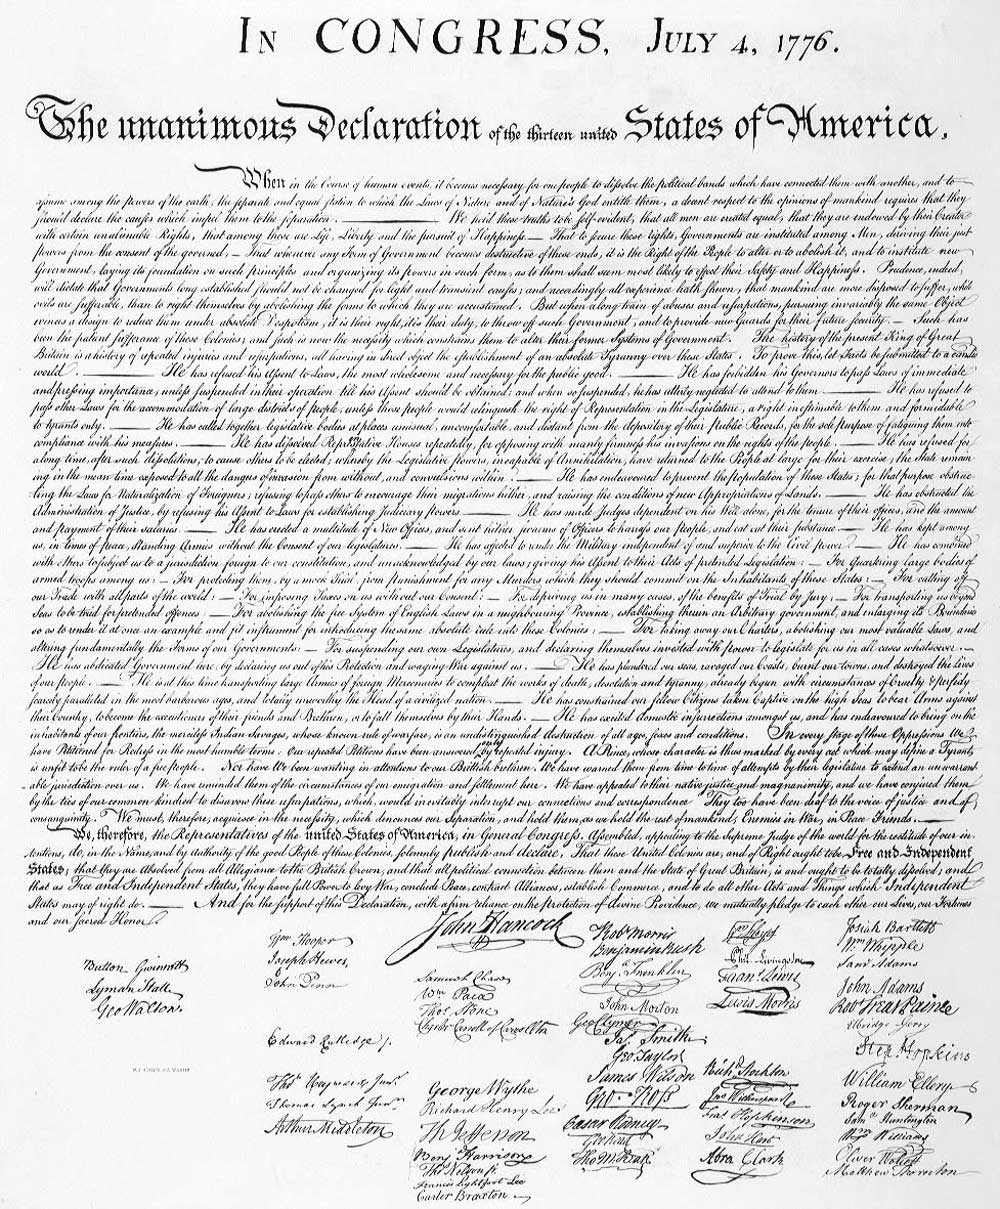 IN CONGRESS, JULY 4, 1776.
The unanimous Declaration of the thirteen united States of America,
When in the Course of human events, it becomes necessary for one people to dissolve the political bands which have connected them with another, and to
assume among the powers of the earth, the separate and equal station to which the Laws of Nature and of Nature's God entitle them, a decent respect to the opinions of mankind requires that they
should declare the causes which impel them to the separation. — We hold these truths to be self-evident, that all men are created equal, that they are endowed by their Creator
with certain unalienable Rights, that among these are Life, Liberty and the pursuit of Happiness. — That to secure these rights, Governments are instituted among Men, deriving their just
powers from the consent of the governed, — That whenever any Form of Government becomes destructive of these ends, it is the Right of the People to alter or to abolish it, and to institute new
Government, laying its foundation on such principles and organizing its powers in such form, as to them shall seem most likely to effect their Safety and Happiness. Prudence, indeed,
will dictate that Governments long established should not be changed for light and transient causes; and accordingly all experience hath shewn, that mankind are more disposed to suffer, while
evils are sufferable, than to right themselves by abolishing the forms to which they are accustomed. But when a long train of abuses and usurpations, pursuing invariably the same Object
evinces a design to reduce them under absolute Despotism, it is their right, it is their duty, to throw off such Government, and to provide new Guards for their future security. — Such has
been the patient sufferance of these Colonies; and such is now the necessity which constrains them to alter their former Systems of Government. The history of the present King of Great
Britain is a history of repeated injuries and usurpations, all having in direct object the establishment of an absolute Tyranny over these States. To prove this, let Facts be submitted to a candid
world. — He has refused his Assent to Laws, the most wholesome and necessary for the public good. — He has forbidden his Governors to pass Laws of immediate
and pressing importance, unless suspended in their operation till his Assent should be obtained; and when so suspended, he has utterly neglected to attend to them. — He has refused to
pass other Laws for the accommodation of large districts of people, unless those people would relinquish the right of Representation in the Legislature, a right inestimable to them and formidable
to tyrants only. — He has called together legislative bodies at places unusual, uncomfortable, and distant from the depository of their public Records, for the sole purpose of fatiguing them into
compliance with his measures. — He has dissolved Representative Houses repeatedly, for opposing with manly firmness his invasions on the rights of the people. — He has refused for
a long time, after such dissolutions, to cause others to be elected; whereby the Legislative powers, incapable of Annihilation, have returned to the People at large for their exercise; the State remain-
ing in the mean time exposed to all the dangers of invasion from without, and convulsions within. — He has endeavoured to prevent the population of these States; for that purpose obstruc-
ting the Laws for Naturalization of Foreigners; refusing to pass others to encourage their migrations hither, and raising the conditions of new Appropriations of Lands. — He has obstructed the
Administration of Justice, by refusing his Assent to Laws for establishing Judiciary powers. — He has made Judges dependent on his Will alone, for the tenure of their offices, and the amount
and payment of their salaries. — He has erected a multitude of New Offices, and sent hither swarms of Officers to harrass our people, and eat out their substance. — He has kept among
us, in times of peace, Standing Armies without the Consent of our legislatures. — He has affected to render the Military independent of and superior to the Civil power. — He has combined
with others to subject us to a jurisdiction foreign to our constitution, and unacknowledged by our laws; giving his Assent to their Acts of pretended Legislation: — For Quartering large bodies of
armed troops among us: — For protecting them, by a mock Trial, from punishment for any Murders which they should commit on the Inhabitants of these States: — For cutting off
our Trade with all parts of the world: — For imposing Taxes on us without our Consent: — For depriving us in many cases, of the benefits of Trial by Jury: — For transporting us beyond
Seas to be tried for pretended offences — For abolishing the free System of English Laws in a neighbouring Province, establishing therein an Arbitrary government, and enlarging its Boundaries
so as to render it at once an example and fit instrument for introducing the same absolute rule into these Colonies: — For taking away our Charters, abolishing our most valuable Laws, and
altering fundamentally the Forms of our Governments: — For suspending our own Legislatures, and declaring themselves invested with power to legislate for us in all cases whatsoever. —
He has abdicated Government here, by declaring us out of his Protection and waging War against us. — He has plundered our seas, ravaged our Coasts, burnt our towns, and destroyed the lives
of our people. — He is at this time transporting large Armies of foreign Mercenaries to compleat the works of death, desolation and tyranny, already begun with circumstances of Cruelty & perfidy
scarcely paralleled in the most barbarous ages, and totally unworthy the Head of a civilized nation. — He has constrained our fellow Citizens taken Captive on the high Seas to bear Arms against
their Country, to become the executioners of their friends and Brethren, or to fall themselves by their Hands. — He has excited domestic insurrections amongst us, and has endeavoured to bring on the
inhabitants of our frontiers, the merciless Indian Savages, whose known rule of warfare, is an undistinguished destruction of all ages, sexes and conditions. In every stage of these Oppressions We
have Petitioned for Redress in the most humble terms: Our repeated Petitions have been answered only by repeated injury. A Prince, whose character is thus marked by every act which may define a Tyrant,
is unfit to be the ruler of a free people. Nor have We been wanting in attentions to our Brittish brethren. We have warned them from time to time of attempts by their legislature to extend an unwarrant-
able jurisdiction over us. We have reminded them of the circumstances of our emigration and settlement here. We have appealed to their native justice and magnanimity, and we have conjured them
by the ties of our common kindred to disavow these usurpations, which, would inevitably interrupt our connections and correspondence. They too have been deaf to the voice of justice and of
consanguinity. We must, therefore, acquiesce in the necessity, which denounces our Separation, and hold them, as we hold the rest of mankind, Enemies in War, in Peace Friends. —
We, therefore, the Representatives of the united States of America, in General Congress, Assembled, appealing to the Supreme Judge of the world for the rectitude of our in-
tentions, do, in the Name, and by Authority of the good People of these Colonies, solemnly publish and declare, That these United Colonies are, and of Right ought to be Free and Independent
States; that they are Absolved from all Allegiance to the British Crown, and that all political connection between them and the State of Great Britain, is and ought to be totally dissolved; and
that as Free and Independent States, they have full Power to levy War, conclude Peace, contract Alliances, establish Commerce, and to do all other Acts and Things which Independent
States may of right do. — And for the support of this Declaration, with a firm reliance on the protection of divine Providence, we mutually pledge to each other our Lives, our Fortunes
and our sacred Honor.
Button Gwinnett
Lyman Hall
Geo Walton.
Wm Hooper
Joseph Hewes,
John Penn
Edward Rutledge /.
Thos Heyward Junr.
Thomas Lynch Junr.
Arthur Middleton
John Hancock
Samuel Chase
Wm Paca
Thos Stone
Charles Carroll of Carrollton
George Wythe
Richard Henry Lee
Th Jefferson
Benj Harrison
Thos Nelson jr.
Francis Lightfoot Lee
Carter Braxton
Robt Morris
Benjamin Rush
Benj Franklin
John Morton
Geo Clymer
Jas Smith
Geo Taylor
James Wilson
Geo Ross
Caesar Rodney
Geo Read
Tho M:Kean
Wm Floyd
Phil Livingston
Frans Lewis
Lewis Morris
Richd Stockton
Jno Witherspoon
Fras Hopkinson
John Hart
Abra Clark
Josiah Bartlett
Wm Whipple
Saml Adams
John Adams
Robt Treat Paine
Elbridge Gerry
Step Hopkins
William Ellery
Roger Sherman
Saml Huntington
Wm Williams
Oliver Wolcott
Matthew Thornton